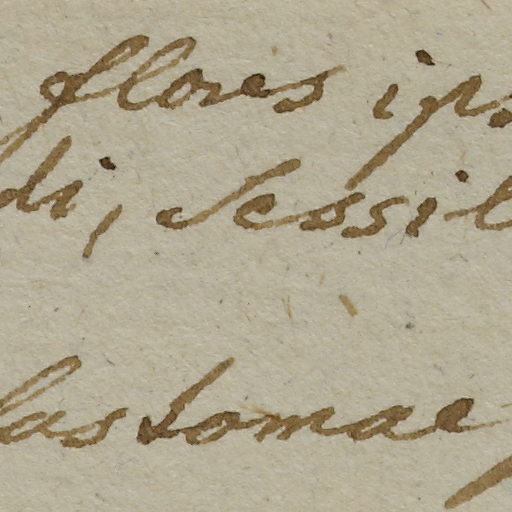 flores ips
di, Sessil
lastomae